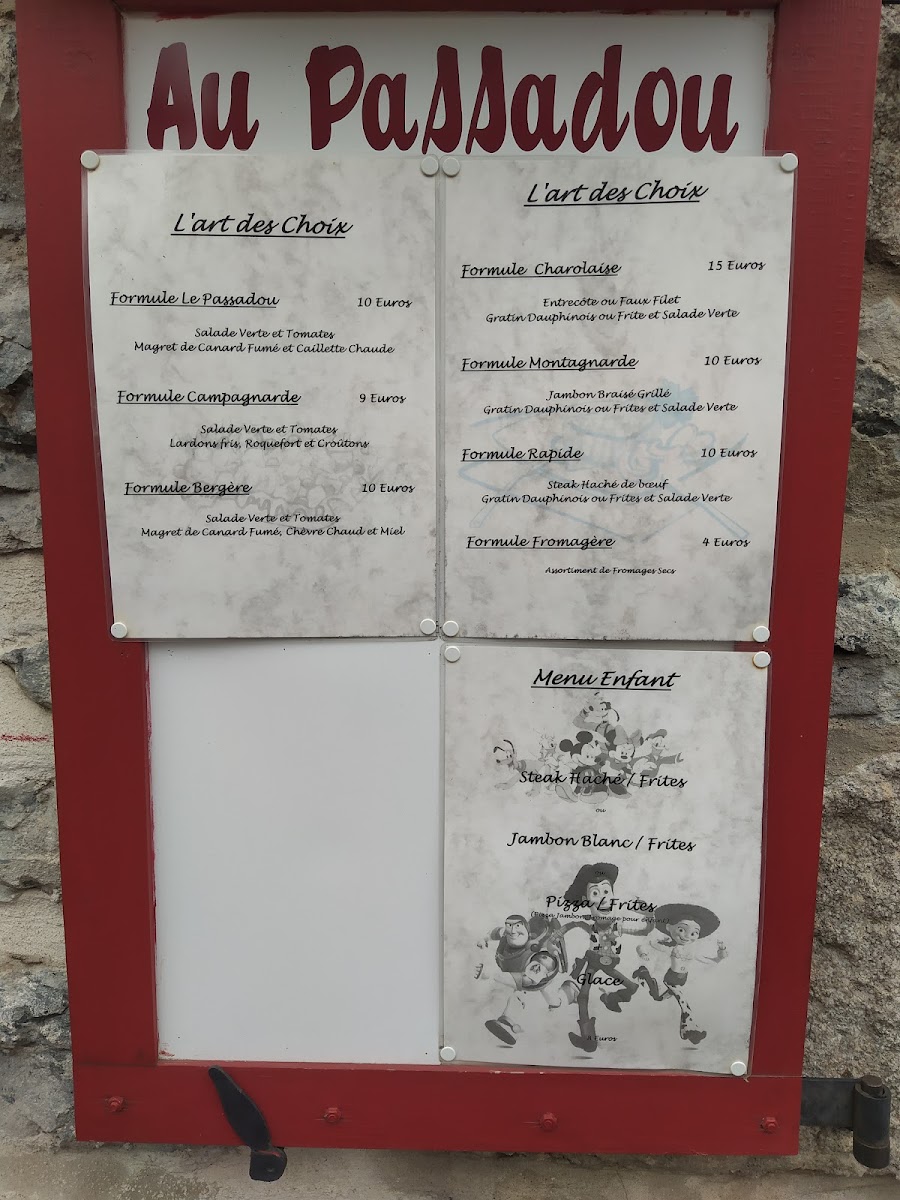 Au Passadou
L'art des Choix
Formule Le Passadou 10 Euros
Salade Verte et Tomates
Magret de Canard Fumé et Caillette Chaude
Formule Campagnarde 9 Euros
Salade Verte et Tomates
Lardons fris, Roquefort et Croûtons
Formule Bergère 10 Euros
Salade Verte et Tomates
Magret de Canard Fumé, Chèvre Chaud et Miel
L'art des Choix
Formule Charolaise 15 Euros
Entrecôte ou Faux Filet
Gratin Dauphinois ou Frite et Salade Verte
Formule Montagnarde 10 Euros
Jambon Braisé Grillé
Gratin Dauphinois ou Frites et Salade Verte
Formule Rapide 10 Euros
Steak Haché de bœuf
Gratin Dauphinois ou Frites et Salade Verte
Formule Fromagère 4 Euros
Assortiment de Fromages Secs
Menu Enfant
Steak Haché / Frites
ou
Jambon Blanc / Frites
Pizza / Frites
(Pizza Jambon Fromage pour enfant)
Glace
Euros